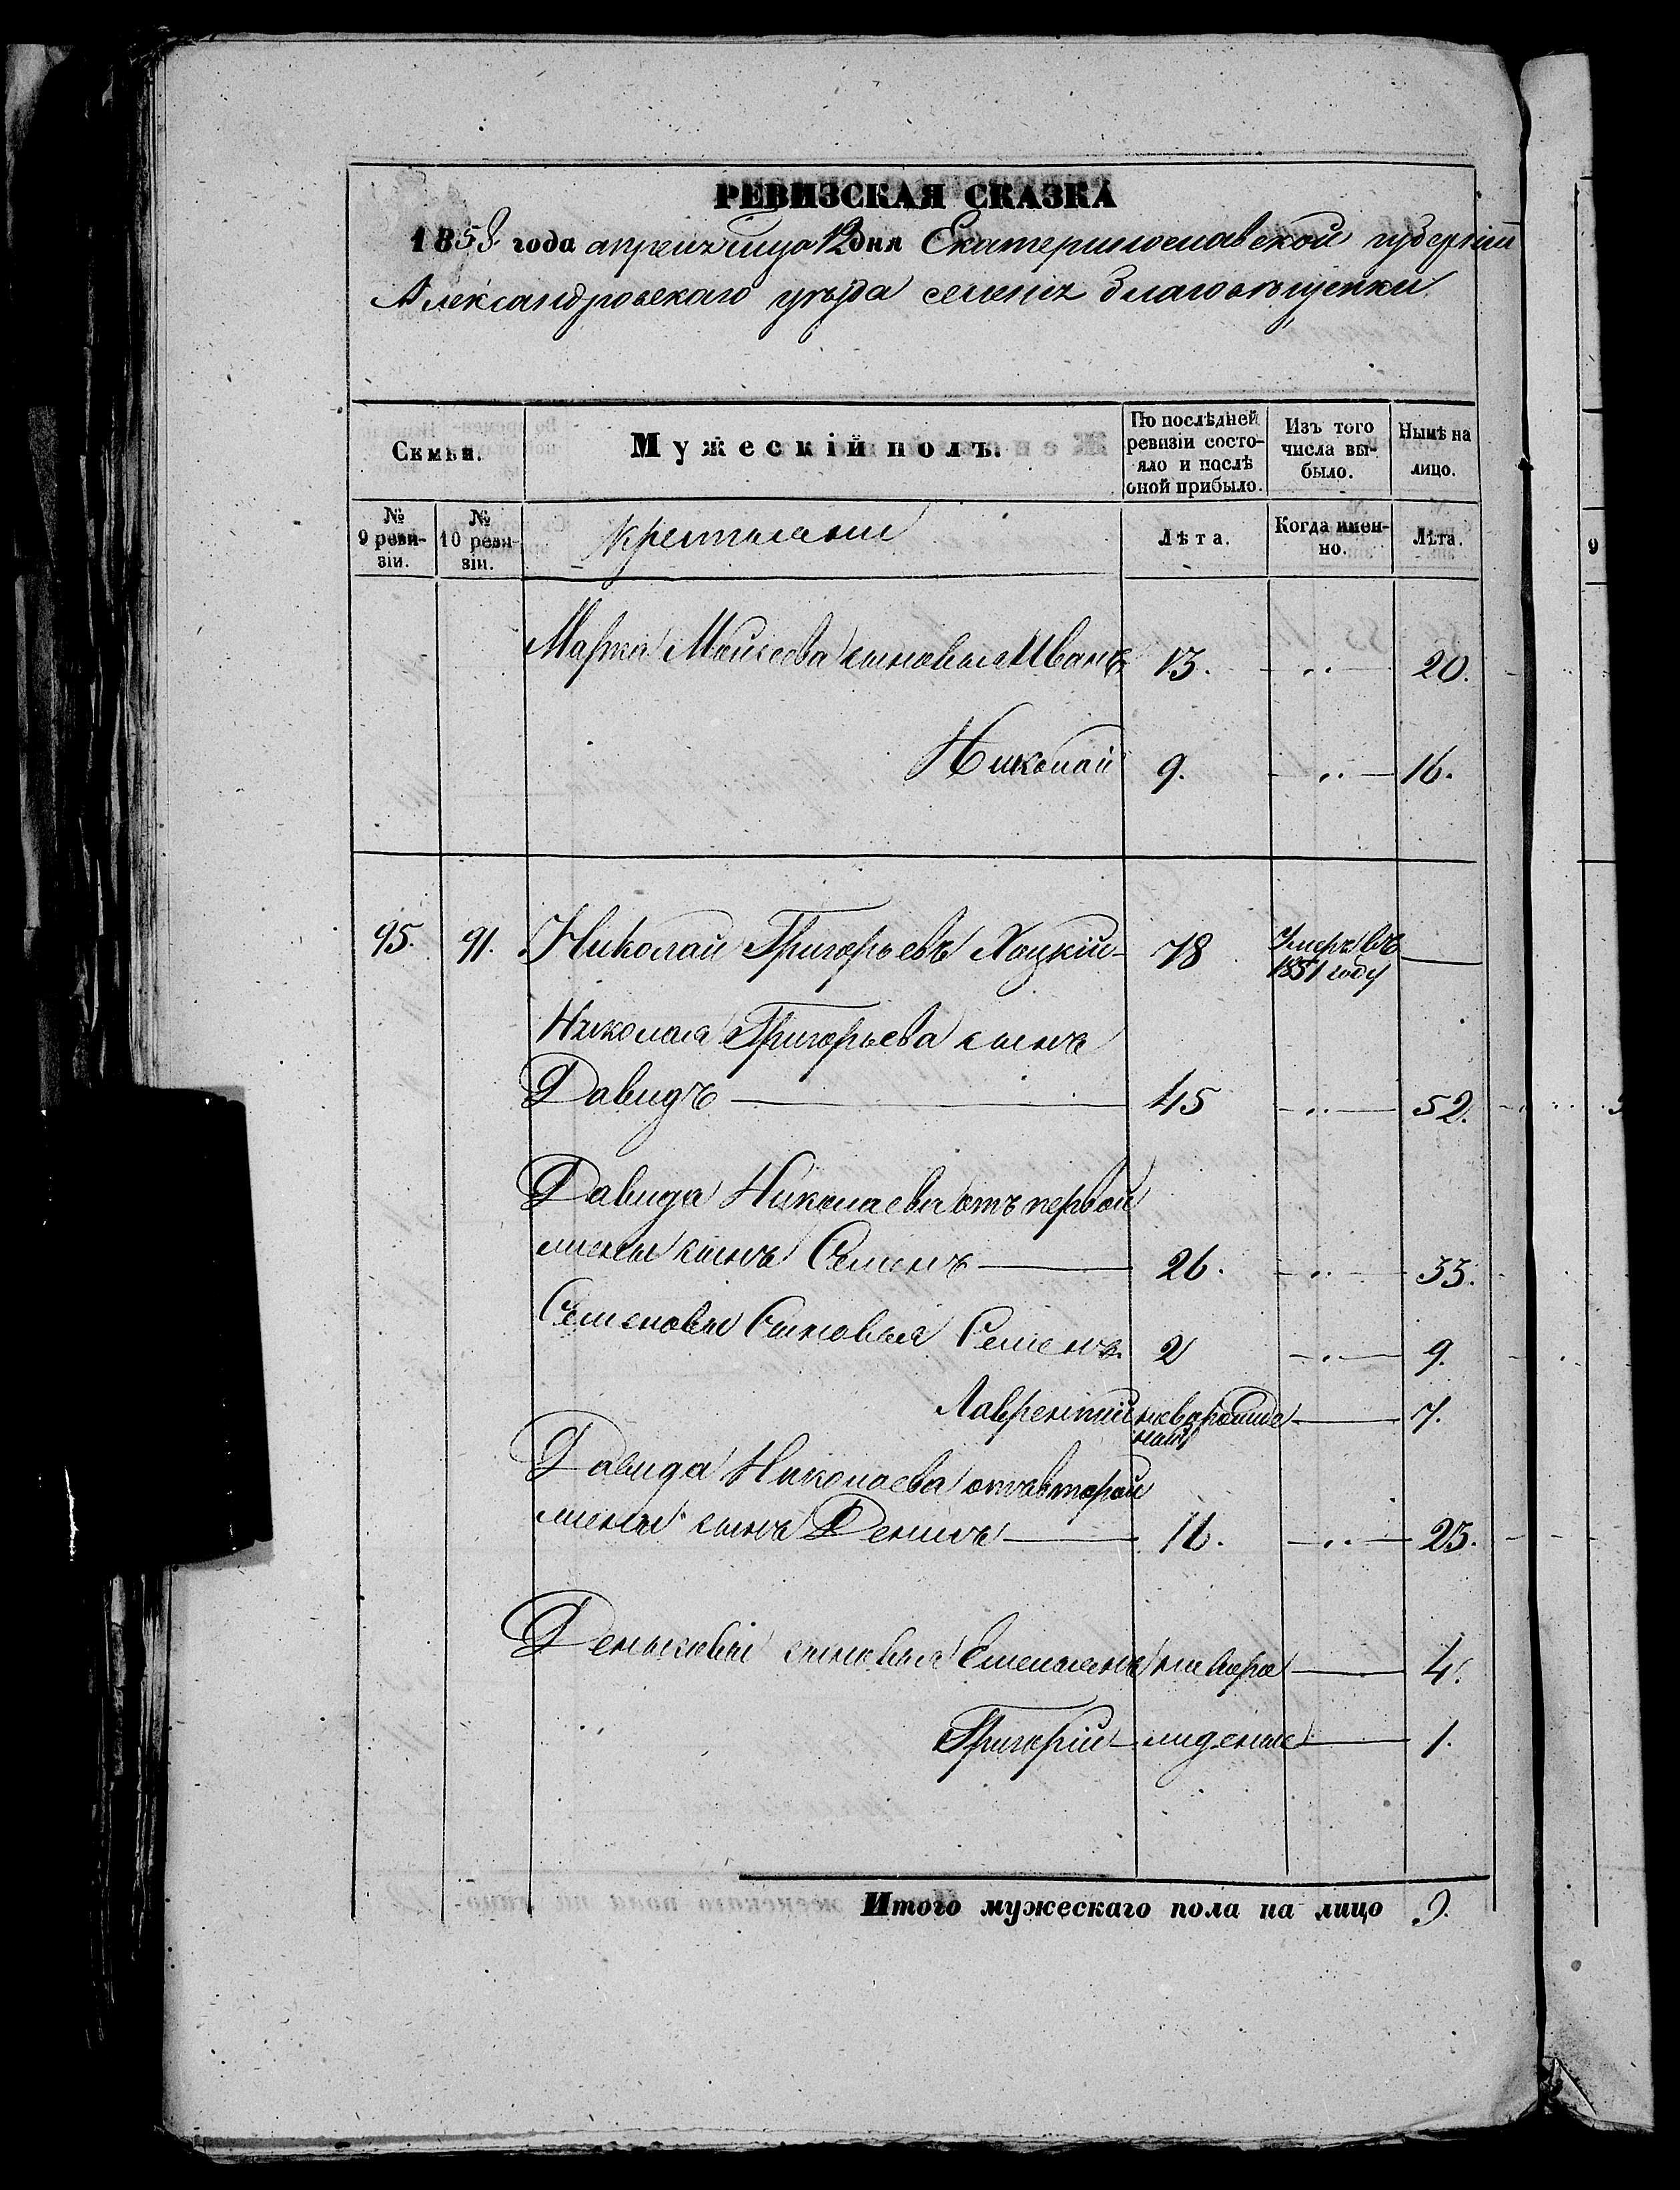 РЕВИЗСКАЯ СКАЗКА
1858 года апреля 12 дня Екатеринославской губерніи
Александровскаго уѣзда селенія Благовѣщенки
Семьи.
Мужескій полъ.
По послѣдней ревизіи состояло и послѣ оной прибыло.
Изъ того числа выбыло.
Нынѣ на лицо.
№ 9 ревизіи.
№ 10 ревизіи.
Крестьяне
Лѣта.
Когда именно.
Лѣта.
Марка Моисеева сыновья Иванъ 13. 20.
Николай 9. 16.
95. 91. Николай Григорьевъ Хоцкій 78 Умеръ въ 1851 году
Николая Григорьева сынъ
Давидъ 45 52.
Давида Николаева отъ первой
жены сынъ Семенъ 26. 33.
Семеновы Сыновья Семенъ. 2 9.
Лаврентій 7.
Давида Николаева отъ второй
жены сынъ Денисъ 16. 23.
Денисовы сыновья Емельянъ 4.
Григорій 1.
Итого мужескаго пола на лицо 9.